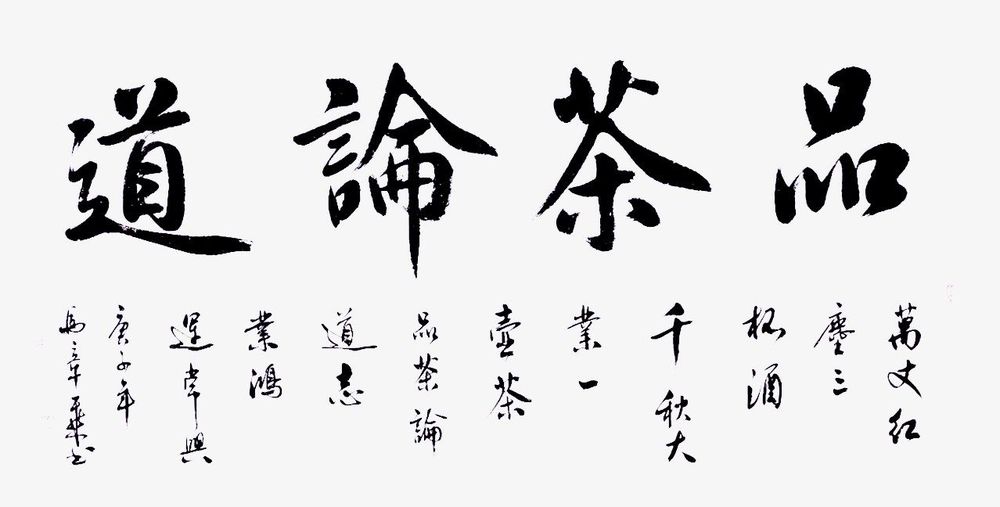 品茶論道
萬丈紅
塵三
杯酒
千秋大
業一
壺茶
品茶論
道志
業鴻
運常興
庚子年
馬立華書